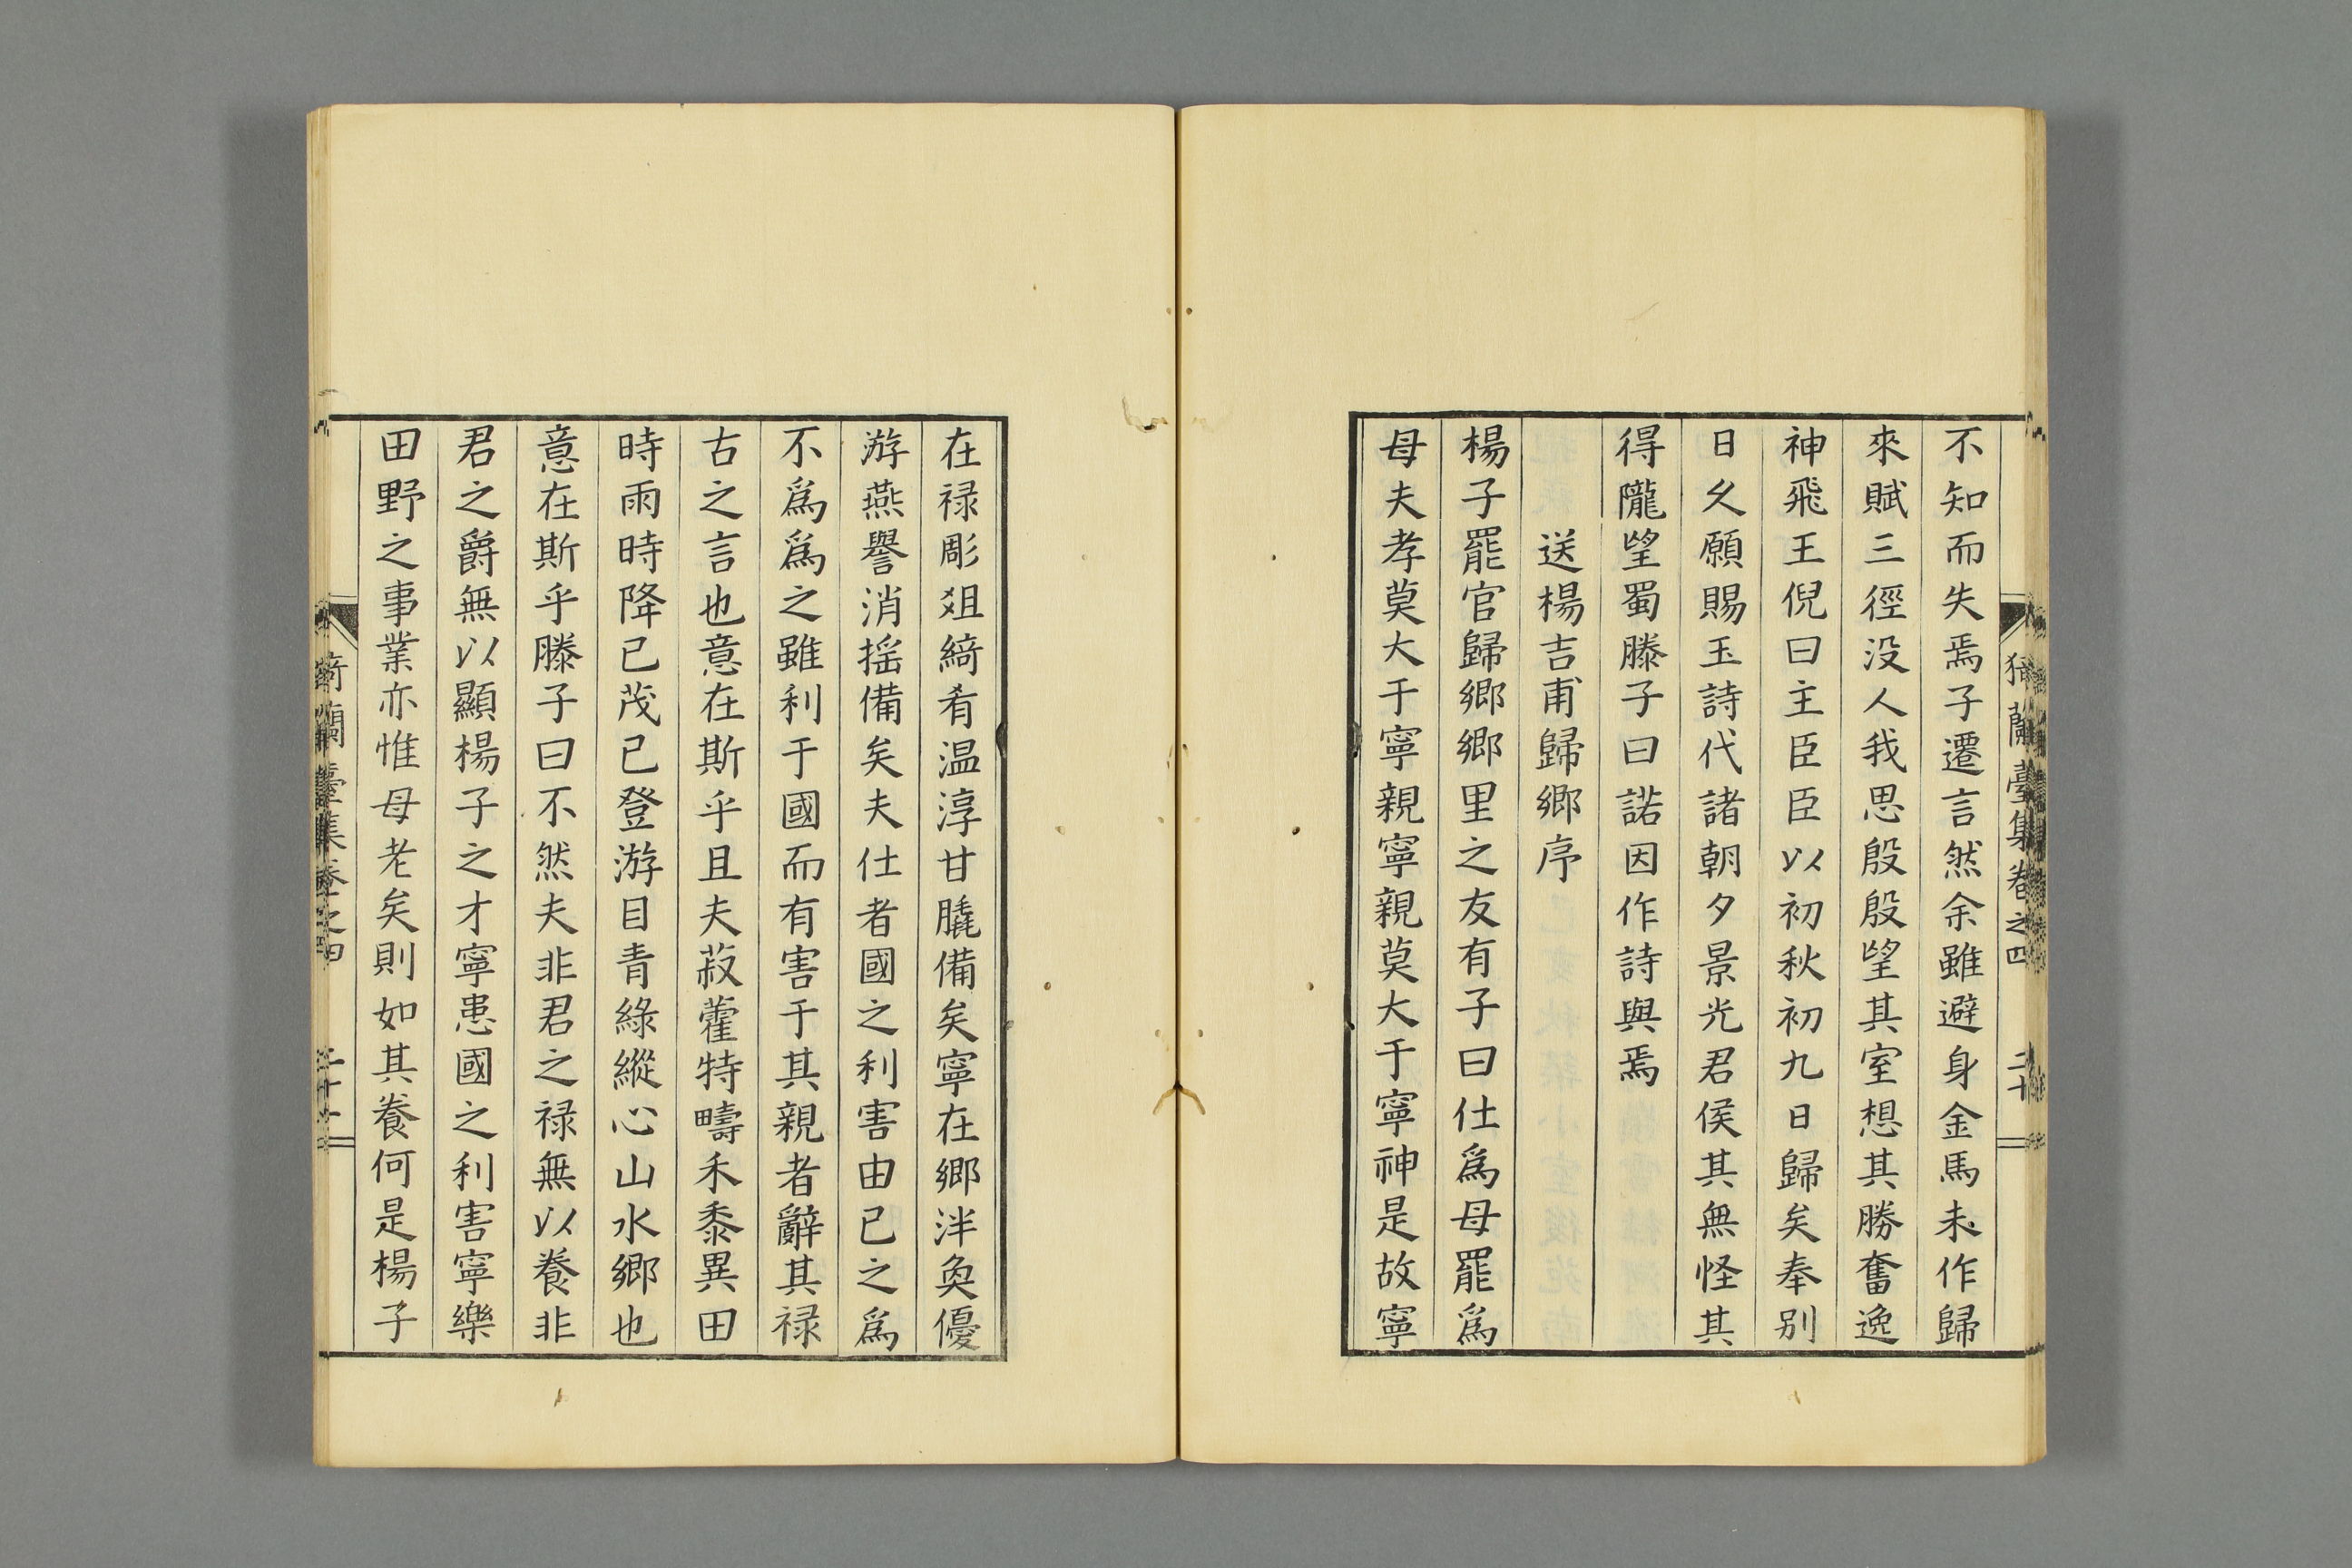 不知而失焉子遷言然余雖避身金馬未作歸
來賦三徑没人我思殷殷望其室想其勝奮逸
神飛王倪曰主臣臣以初秋初九日歸矣奉别
日久願賜玉詩代諸朝夕景光君侯其無怪其
得隴望蜀滕子曰諾因作詩與焉
送楊吉甫歸鄉序
楊子罷官歸鄉鄉里之友有子曰仕爲母罷爲
母夫孝莫大于寧親寧親莫大于寧神是故寧
在禄彫俎綺肴温淳甘膬備矣寧在鄉泮奐優
游燕譽消摇備矣夫仕者國之利害由已之爲
不爲爲之雖利于國而有害于其親者辭其禄
古之言也意在斯乎且夫菽藿特疇禾黍異田
時雨時降已茂已登游目青綠縱心山水鄉也
意在斯乎滕子曰不然夫非君之禄無以養非
君之爵無以顯楊子之才寧患國之利害寧樂
田野之事業亦惟母老矣則如其養何是楊子
蘭臺集卷之四
二十
蘭臺集卷之四
二十一